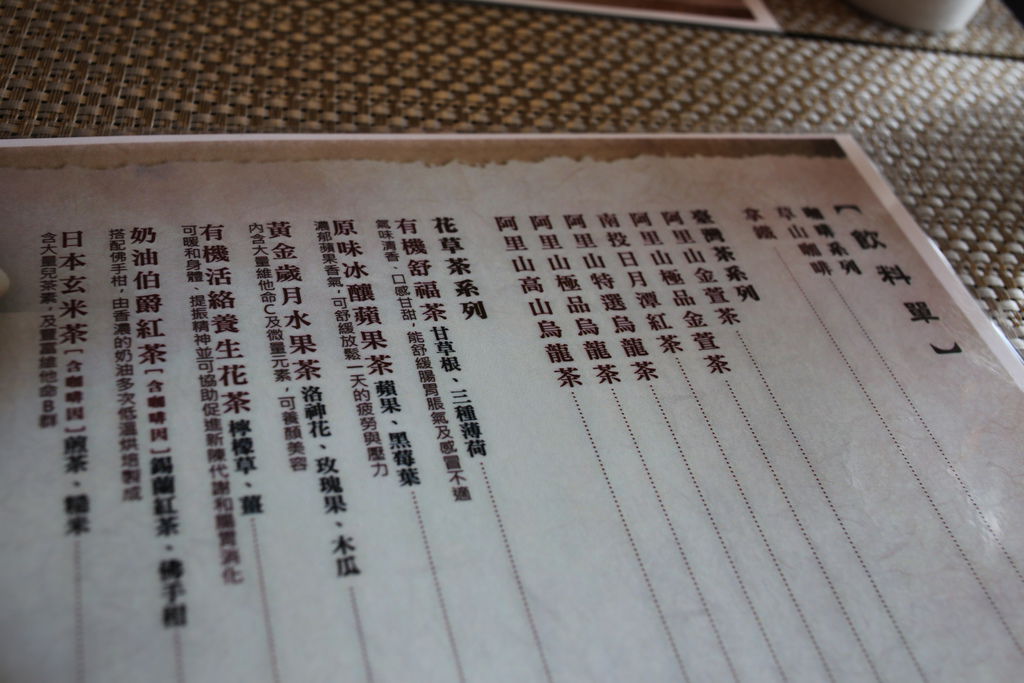 【飲料單】
咖啡系列
草山咖啡
拿鐵
臺灣茶系列
阿里山金萱茶
阿里山極品金萱茶
南投日月潭紅茶
阿里山特選烏龍茶
阿里山極品烏龍茶
阿里山高山烏龍茶
花草茶系列
有機舒福茶 甘草根、三種薄荷
氣味清香、口感甘甜，能舒緩腸胃脹氣及感冒不適
原味冰釀蘋果茶 蘋果、黑莓葉
濃郁蘋果香氣，可舒緩放鬆一天的疲勞與壓力
黃金歲月水果茶 洛神花、玫瑰果、木瓜
內含大量維他命C及微量元素，可養顏美容
有機活絡養生花茶 檸檬草、薑
可暖和身體、提振精神並可協助促進新陳代謝和腸胃消化
奶油伯爵紅茶【含咖啡因】錫蘭紅茶、佛手柑
搭配佛手柑，由香濃的奶油多次低溫烘培製成
日本玄米茶【含咖啡因】煎茶、糙米
含大量兒茶素，及豐富維他命B群